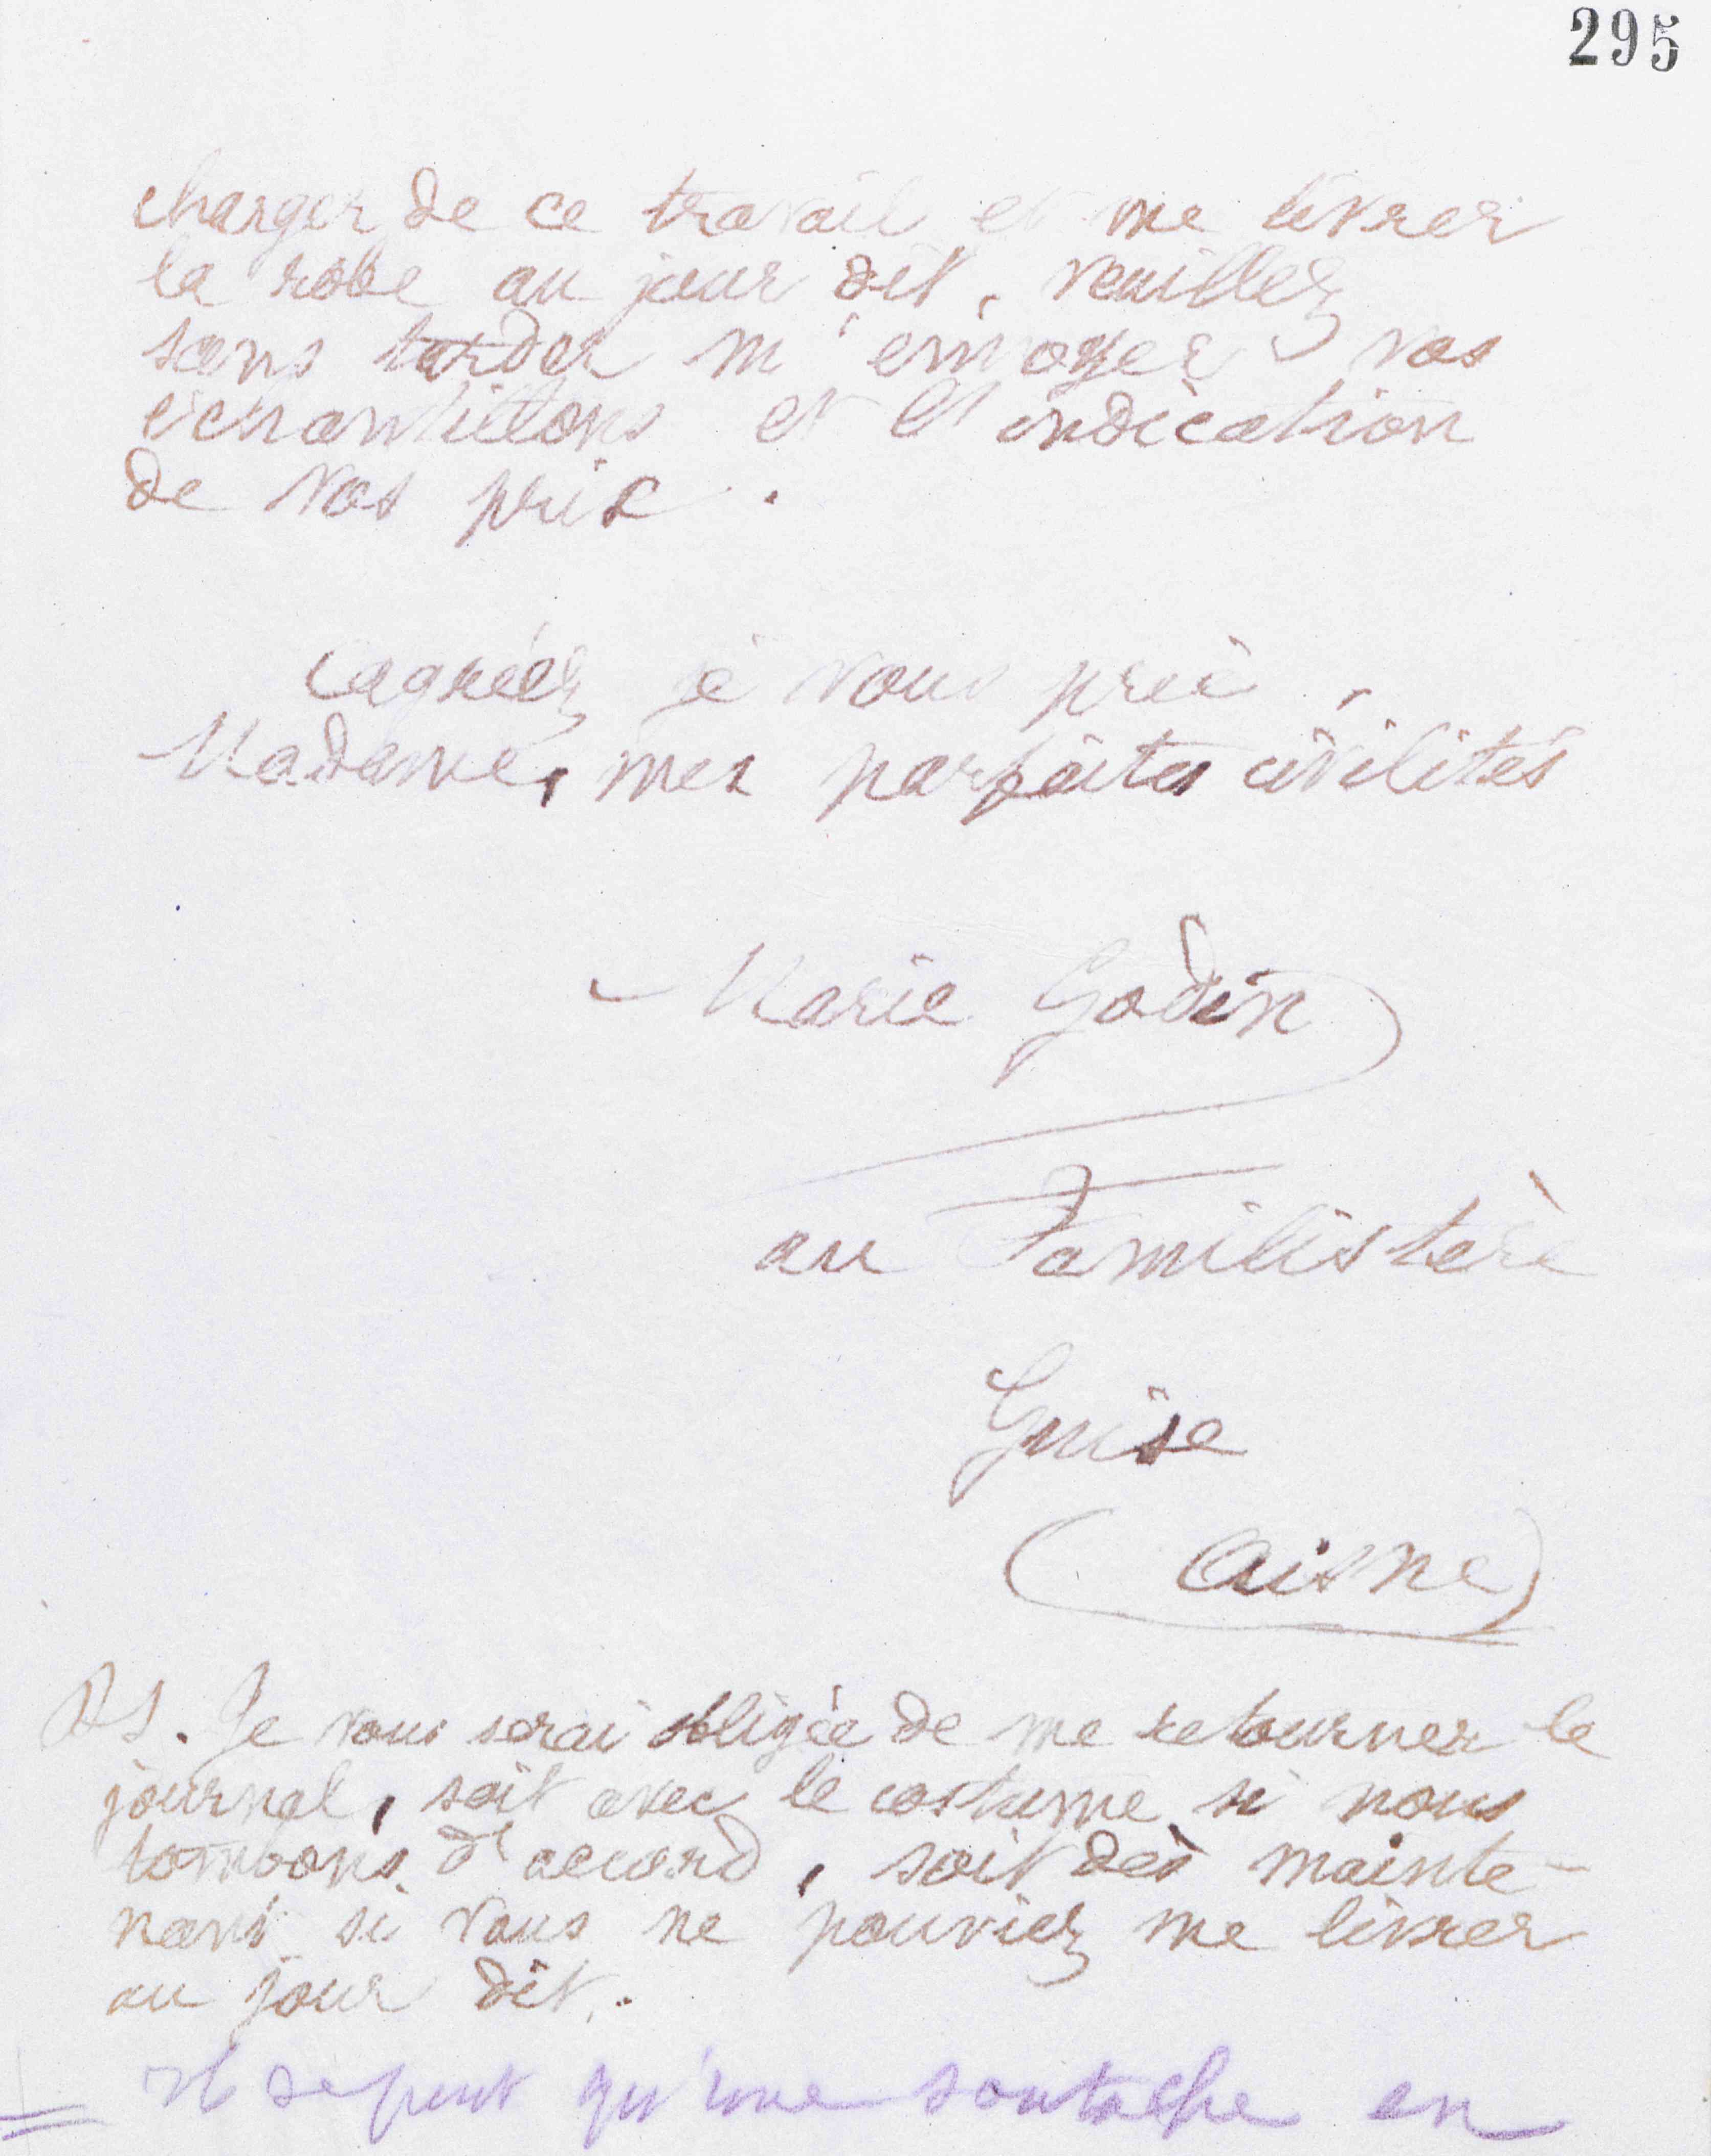 295
charger de ce travail et me livrer
la robe au jour dit, veuillez
sans tarder m'envoyer vos
échantillons et l'indication
de vos prix.
Agréez je vous prie,
Madame, mes parfaites civilités
Marie Godin
au Familistère
Guise
(Aisne)
PS. Je vous serai obligée de me retourner le
journal, soit avec le costume si nous
tombons d'accord, soit dès mainte-
nant si vous ne pouviez me livrer
au jour dit.
= Il se peut qu'une soutache en